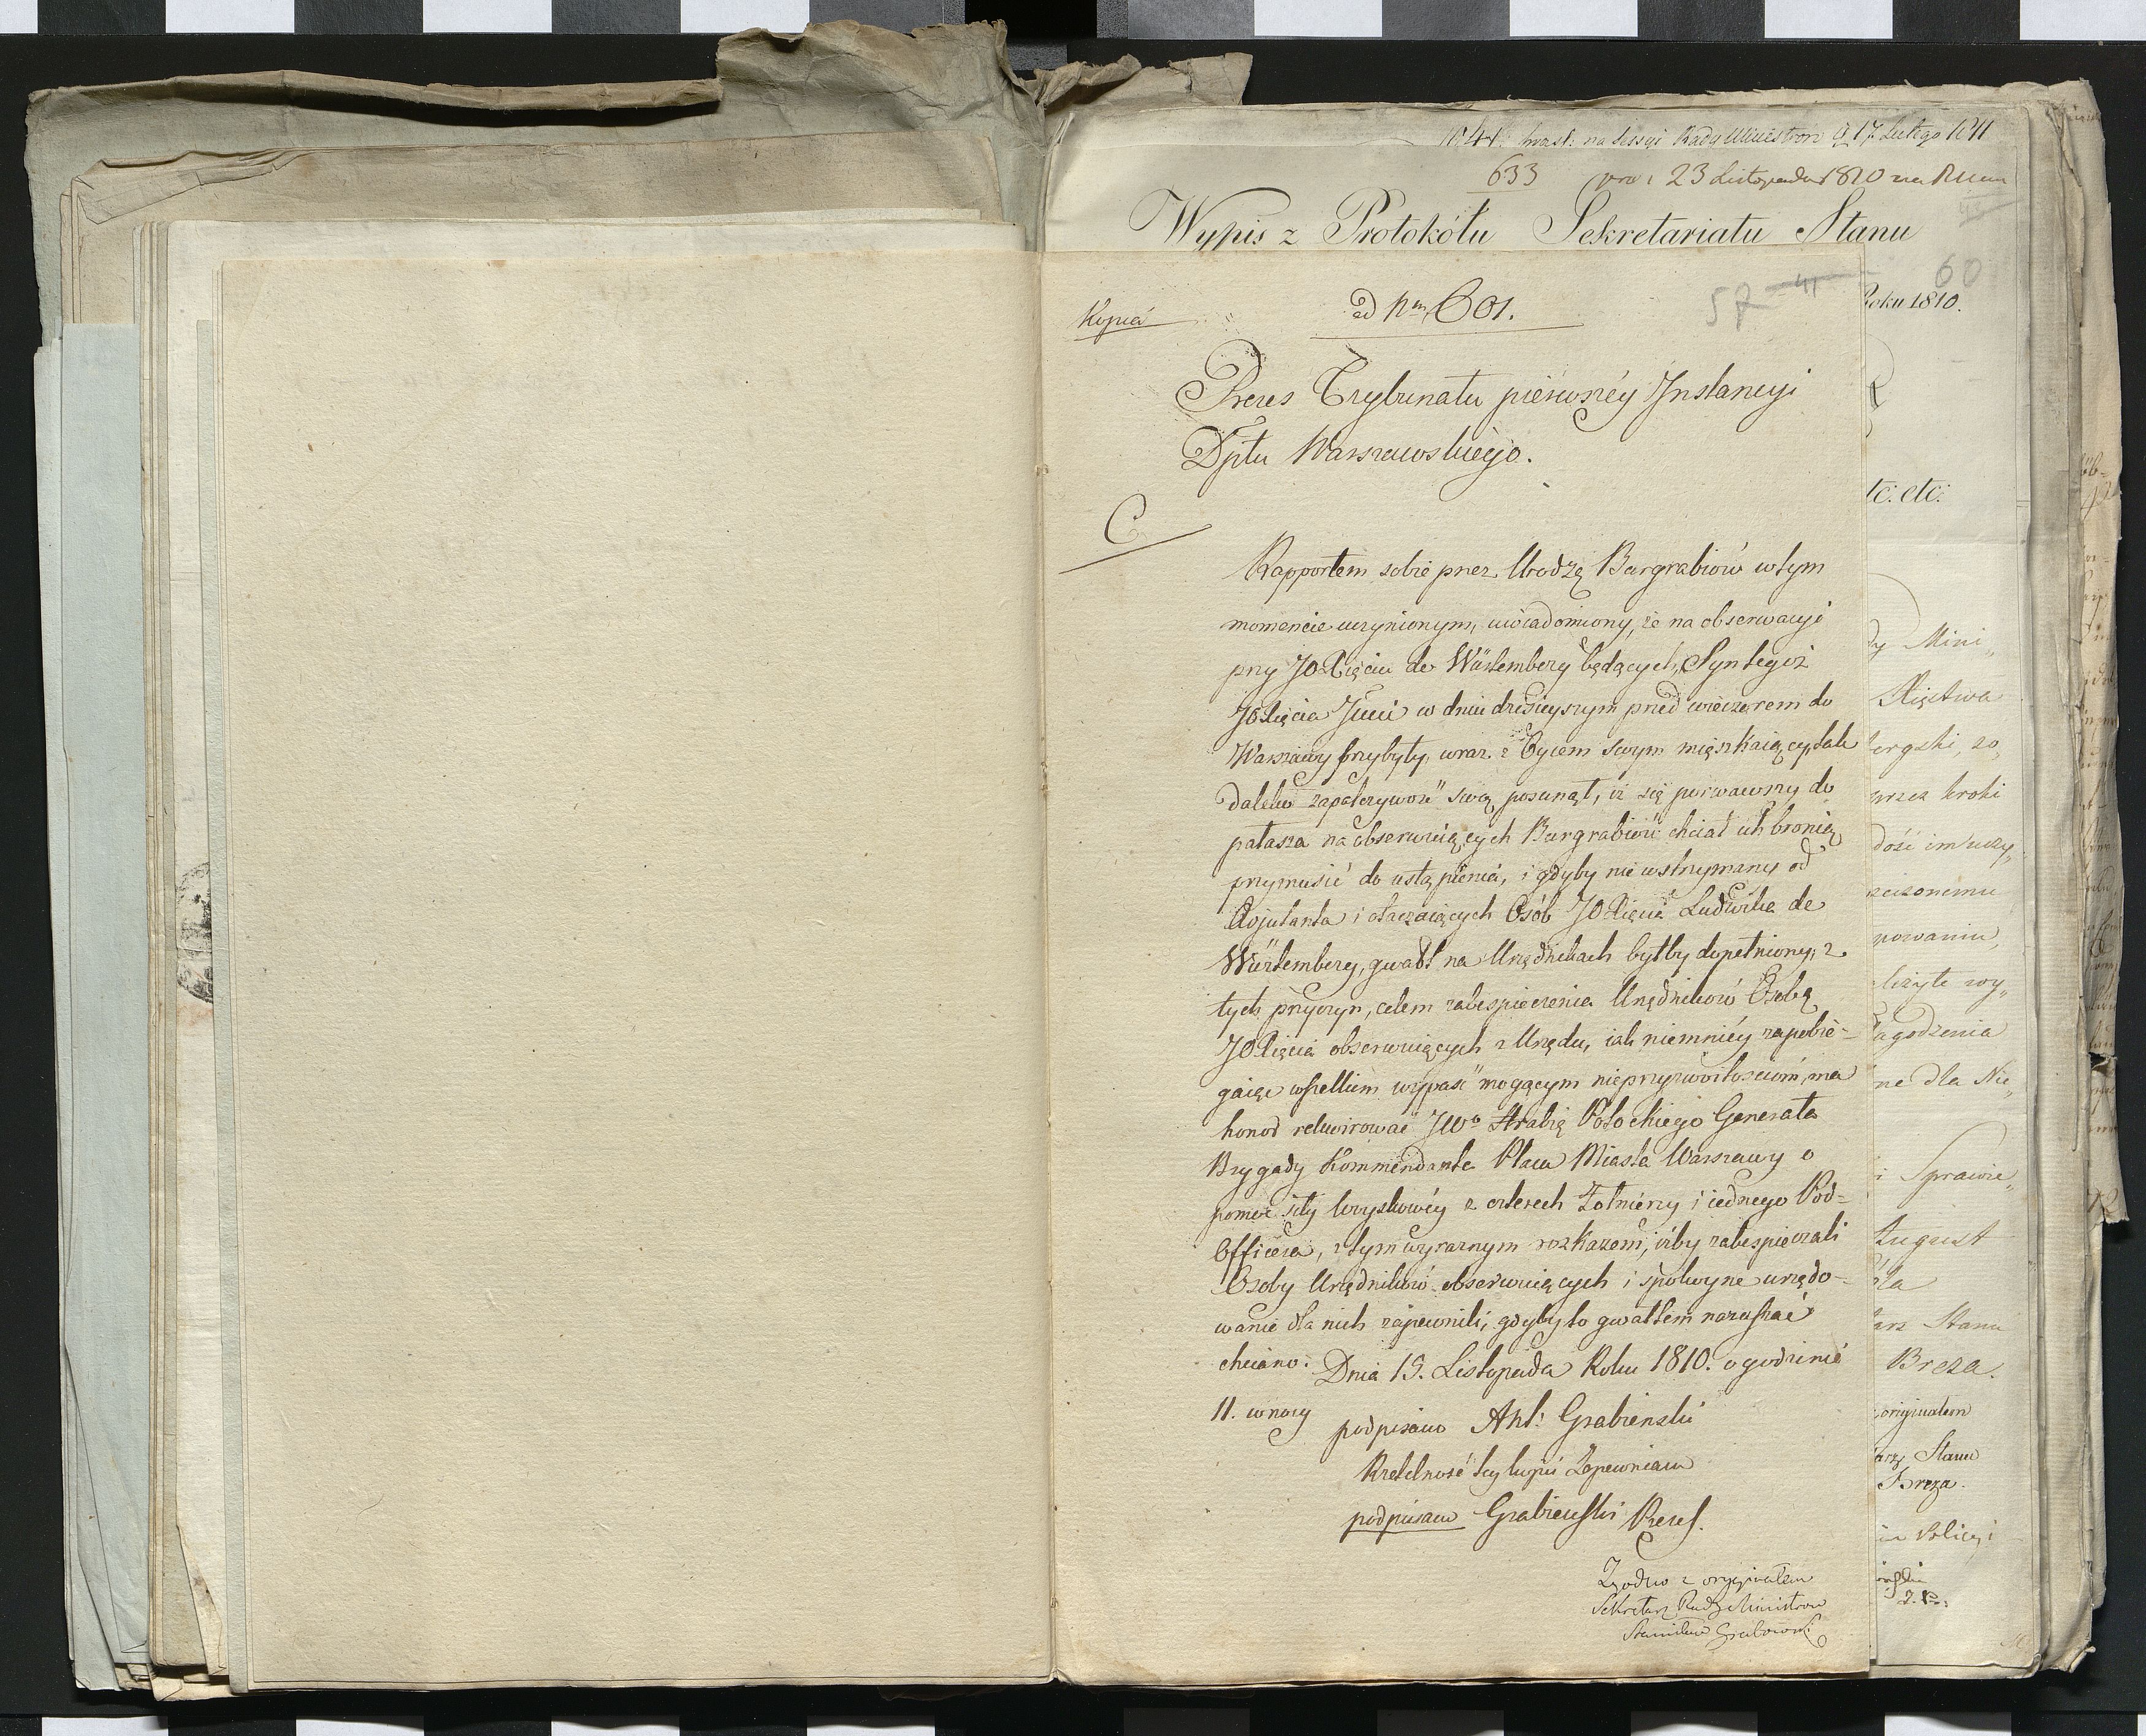 na sessyi Rady Ministrow d 17 Lutego 1811
633 23 Listopada 1810 na
Wypis z Protokółu Sekretariatu Stanu
60
Roku 1810.
Kopia
ad Nrm 601.
57 41
Prezes Trybunału pierwszéy Instancyi
Dptu Warszawskiego.
C
Rapportem sobie przez Urodzę Burgrabiów w tym
momencie uczynionym, uwiadomiony, że na obserwacyi
przy JO Xięciu de Würtemberg będących, Syn tegoż
JO Xięcia Jmci w dniu dzisieyszym przed wieczorem do
Warszawy przybyły, wraz z Oycem swym mięszkaiący, tak
daleko zapalczywość swą posunął, iż się porwawszy do
pałasza na obserwuiących Burgrabiów chciał ich bronią
przymusić do ustąpienia, i gdyby nie wstrzymany od
Adjutanta i otaczaiących Osób JO Xięcia Ludwika de
Würtemberg, gwałt na Urzędnikach byłby dopełniony, z
tych przyczyn, celem zabespieczenia Urzędników Osobę
JO Xięcia obserwuiących z Urzędu, iak niemniéy zapobie-
gaiąc wszelkim wypaść mogącym nieprzyzwoitościom, ma
honor rekwirować JWo Hrabię Potockiego Generała
Brygady Kommendanta Placu Miasta Warszawy o
pomoc siły woyskowéy z czterech Żołnierzy i iednego Pod-
Officera, z tym wyraznym rozkazem, iżby zabespieczali
Osoby Urzędników obserwuiących i spokoyne urzędo-
wanie dla nich zapewnili, gdyby to gwałtem naruszać
chciano. Dnia 15. Listopada Roku 1810. o godzinie
11. w nocy
podpisano Ant: Grabienski
Rzetelność tey kopii Zapewniam
podpisano Grabieński Prezes.
Zgodno z oryginałem
Sekretarz Rady Ministrow
Stanisław Grabowski
tc: etc:
dy Mini„
Xięstwa
ergski, zo„
przez kroki
dość im uczy„
powaniu,
łagodzenia
ne dla Nie„
i Sprawie„
August
óla
arz Stanu
Breza.
oryginałem
arz Stanu
Breza.
Policyi